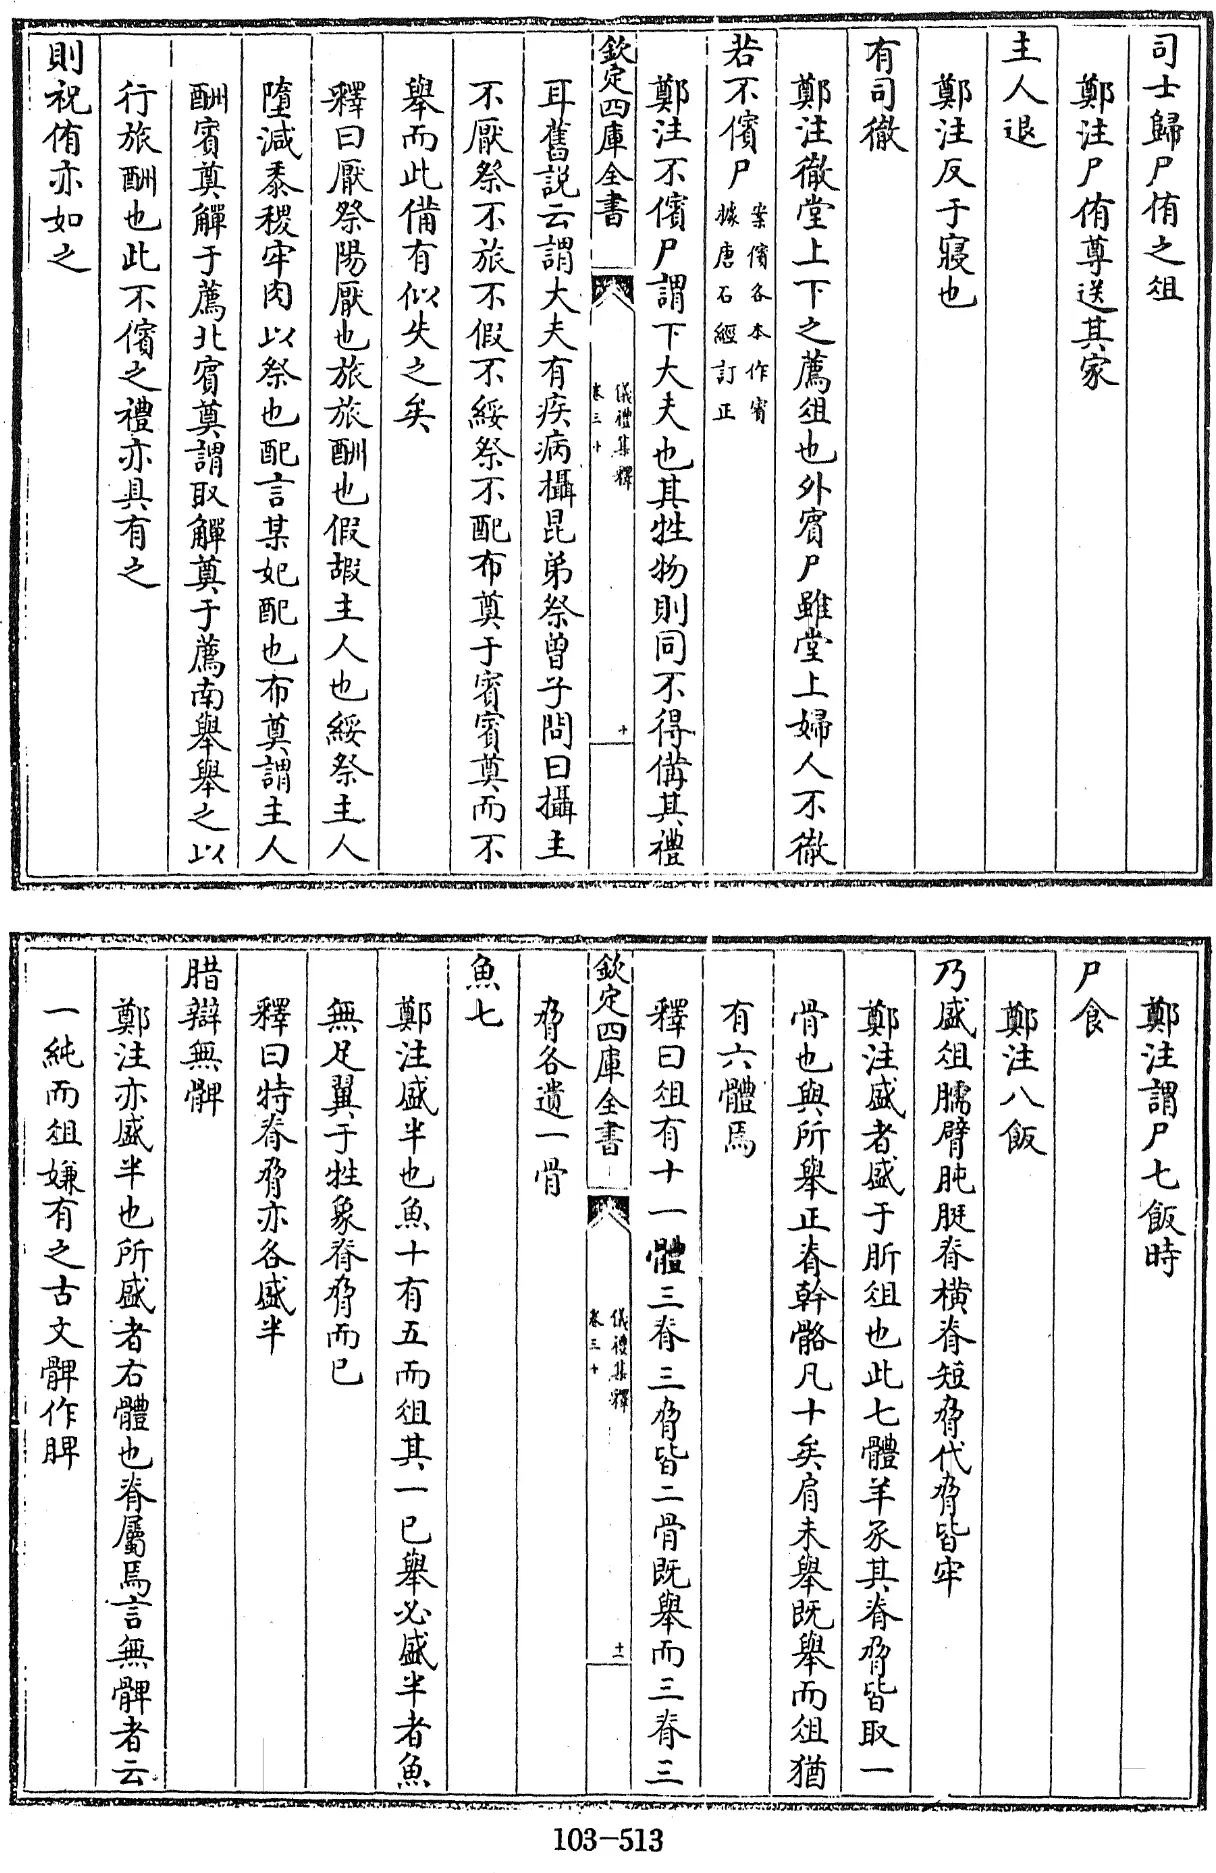 司士歸尸侑之俎
鄭注尸侑尊送其家
主人退
鄭注反于寢也
有司徹
鄭注徹堂上下之薦俎也外賓尸雖堂上婦人不徹
若不儐尸案儐各本作賓據唐石經訂正
鄭注不儐尸謂下大夫也其牲物則同不得備其禮
欽定四庫全書
儀禮集釋
卷三十
十
耳舊說云謂大夫有疾病攝昆弟祭曾子問曰攝主
不厭祭不旅不假不綏祭不配布奠于賓賓奠而不
舉而此備有似失之矣
釋曰厭祭陽厭也旅旅酬也假嘏主人也綏祭主人
墮減黍稷牢肉以祭也配言某妃配也布奠謂主人
酬賓奠觶于薦北賓奠謂取觶奠于薦南舉舉之以
行旅酬也此不儐之禮亦具有之
則祝侑亦如之
鄭注謂尸七飯時
尸食
鄭注八飯
乃盛俎臑臂肫脡脊橫脊短脅代脅皆牢
鄭注盛者盛于肵俎也此七體羊豕其脊脅皆取一
骨也與所舉正脊幹骼凡十矣肩未舉既舉而俎猶
有六體焉
釋曰俎有十一體三脊三脅皆二骨既舉而三脊三
欽定四庫全書
儀禮集釋
卷三十
十一
脅各遺一骨
魚七
鄭注盛半也魚十有五而俎其一已舉必盛半者魚
無足翼于牲象脊脅而已
釋曰特脊脅亦各盛半
腊辯無髀
鄭注亦盛半也所盛者右體也脊屬焉言無髀者云
一純而俎嫌有之古文髀作脾
103-513